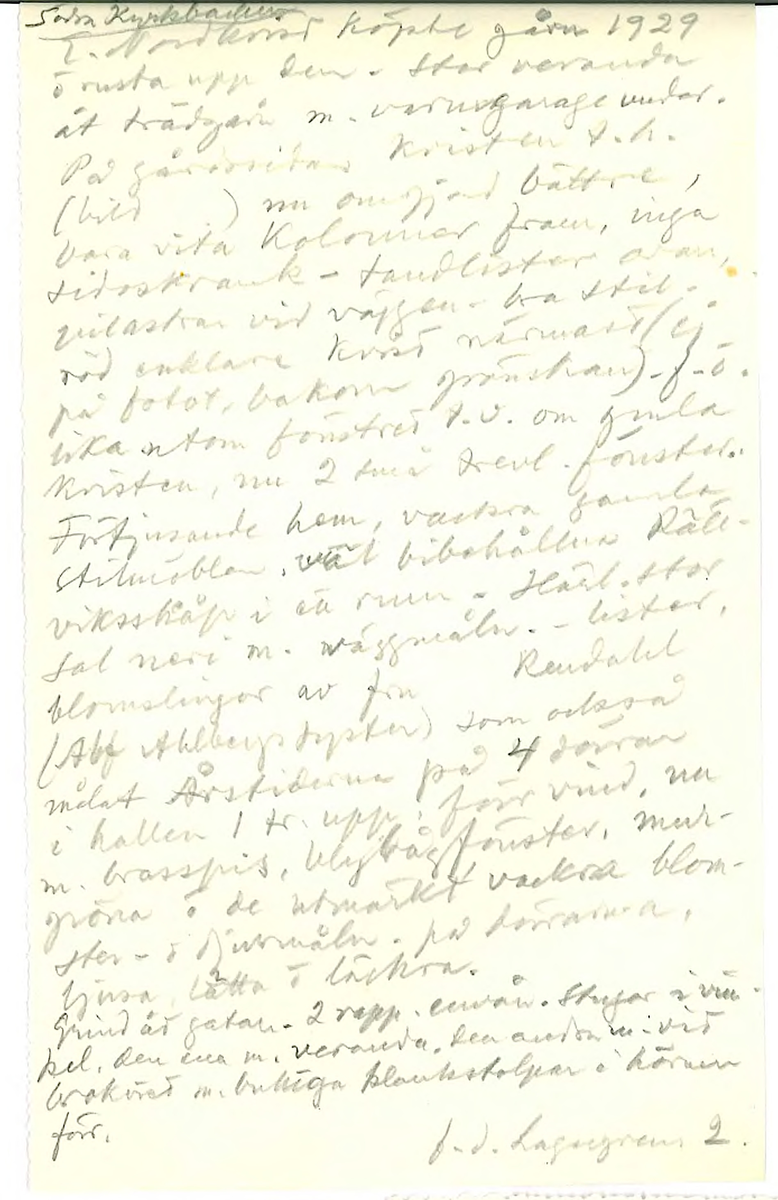 Södra Kyrkbacken
E. Nordkvist köpte gårn 1929
o rusta upp den. Stor veranda
åt trädgårn m. varmgarage under.
På gårdssidan kvisten t.h.
(bild ) nu omgjord bättre,
bara vita kolonner fram, inga
sidoskrank - tandlister ovan,
pilastrar vid väggen - bra stil -
röd enklare kvist närmast (ej
på fotot, bakom grönskan) - f.ö.
lika utom fönstret t.v. om gamla
kvisten, nu 2 små trevl. fönster.
Förtjusande hem, vackra gamla
stilmöbler, väl bibehållna Rätt-
viksskåp i ett rum. Härl. stor
sal neri m. väggmåln. - lister,
blomslingor av fru Rendahl
(Abf Ahlbergsdotter) som också
målat Årstiderna på 4 dörrar
i hallen 1 tr. upp, förr vind, nu
m. brasspis, blybågfönster, mur-
gröna o de utmärkt vackra blom-
ster- o djurmåln. på dörrarna,
ljusa, lätta o läckra.
Grind åt gatan. 2 rapp. envån. stugor i vin-
kel, den ena m. veranda. Den andra m. vid
brokvist m. bulliga plankstolpar i hörnen
förr.
f.d. Lagergrens 2.